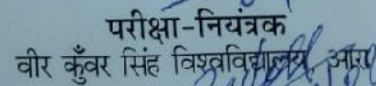 परीक्षा-नियंत्रक
वीर कुँवर सिंह विश्वविद्यालय, आरा